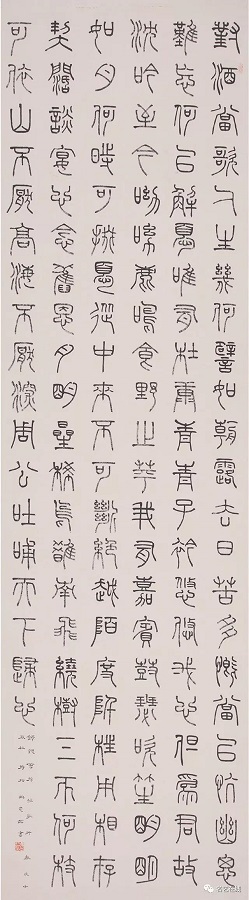 對酒當歌人生幾何譬如朝露去日苦多慨當以忼幽思
難忘何以解憂唯有杜康青青子衿悠悠我心但為君故
沈吟至今呦呦鹿鳴食野之苹我有嘉賓鼓瑟吹笙明明
如月何時可掇憂從中來不可斷絕越陌度阡枉用相存
契闊談宴心念舊恩月明星稀烏鵲南飛繞樹三匝何枝
可依山不厭高海不厭深周公吐哺天下歸心